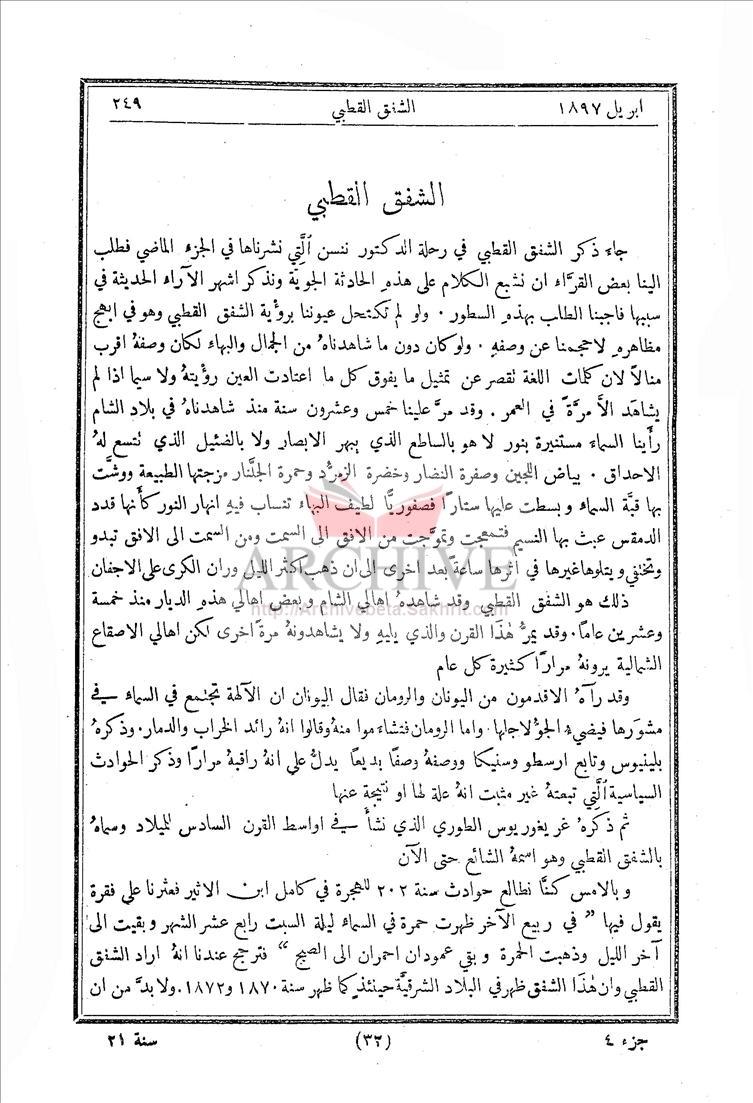 ابريل ١٨٩٧ الشفق القطبي ٢٤٩
الشفق القطبي
جاءَ ذكر الشفق القطبي في رحلة الدكتور ننسن ٱلَّتي نشرناها في الجزء الماضي فطلب
الينا بعض القرَّاء ان نشبع الكلام على هذهِ الحادثة الجوية ونذكر اشهر الآراء الحديثة في
سببها فاجبنا الطلب بهذهِ السطور ٠ ولو لم تكتحل عيوننا برؤية الشفق القطبي وهو في ابهج
مظاهرهِ لاحجمنا عن وصفهِ ٠ ولو كان دون ما شاهدناهُ من الجمال والبهاء لكان وصفهُ اقرب
منالاً لان كلمات اللغة تقصر عن تمثيل ما يفوق كل ما اعتادت العين رؤيتهُ ولا سيما اذا لم
يشاهَد الاَّ مرَّةً في العمر . وقد مرَّ علينا خمس وعشرون سنة منذ شاهدناهُ في بلاد الشام
رأينا السماء مستنيرة بنور لا هو بالساطع الذي يبهر الابصار ولا بالضئيل الذي تتسع لهُ
الاحداق ٠ بياض اللجين وصفرة النضار وخضرة الزمرُّد وحمرة الجلَّنار مزجتها الطبيعة ووشَّت
بها قبَّة السماء وبسطت عليها ستارًا فصفوريًّا لطيف البهاء تنساب فيهِ انهار النور كأنها قدد
الدمقس عبث بها النسيم فتمعجت وتموَّجت من الافق الى السمت ومن السمت الى الافق تبدو
وتختفي ويتلوها غيرها في اثرها ساعةً بعد اخرى الى ان ذهب اكثر الليل وران الكرى على الاجفان
ذلك هو الشفق القطبي وقد شاهدهُ اهالي الشام وبعض اهالي هذهِ الديار منذ خمسة
وعشرين عاماً . وقد يمرُّ هٰذا القرن والذي يليهِ ولا يشاهدونهُ مرةً اخرى لكن اهالي الاصقاع
الشمالية يرونهُ مرارًا كثيرة كل عام
وقد رآهُ الاقدمون من اليونان والرومان فقال اليونان ان الآلهة تجتمع في السماء في
مشوَرها فيضيءُ الجوُّ لاجلها . واما الرومان فتشاءموا منهُ وقالوا انهُ رائد الخراب والدمار . وذكرهُ
بلينيوس وتابع ارسطو وسنيكا ووصفهُ وصفًا بديعًا يدلُّ على انهُ راقبهُ مرارًا وذكر الحوادث
السياسية ٱلَّتي تبعتهُ غير مثبت انهُ علة لها او نتيجة عنها
ثم ذكرهُ غريغوريوس الطوري الذي نشأ في اواسط القرن السادس للميلاد وسماهُ
بالشفق القطبي وهو اسمهُ الشائع حتى الآن
وبالامس كنَّا نطالع حوادث سنة ٢٠٢ للهجرة في كامل ابن الاثير فعثرنا على فقرة
يقول فيها " في ربيع الآخر ظهرت حمرة في السماء ليلة السبت رابع عشر الشهر وبقيت الى
آخر الليل وذهبت الحمرة وبقي عمودان احمران الى الصبح " فترجح عندنا انهُ اراد الشفق
القطبي وان هٰذا الشفق ظهر في البلاد الشرقيَّة حينئذٍ كما ظهر سنة ١٨٧٠ و١٨٧٢. ولا بدَّ من ان
جزء ٤ (٣٢) سنة ٢١
ARCHIVE
http://Archivebeta.Sakhrit.com